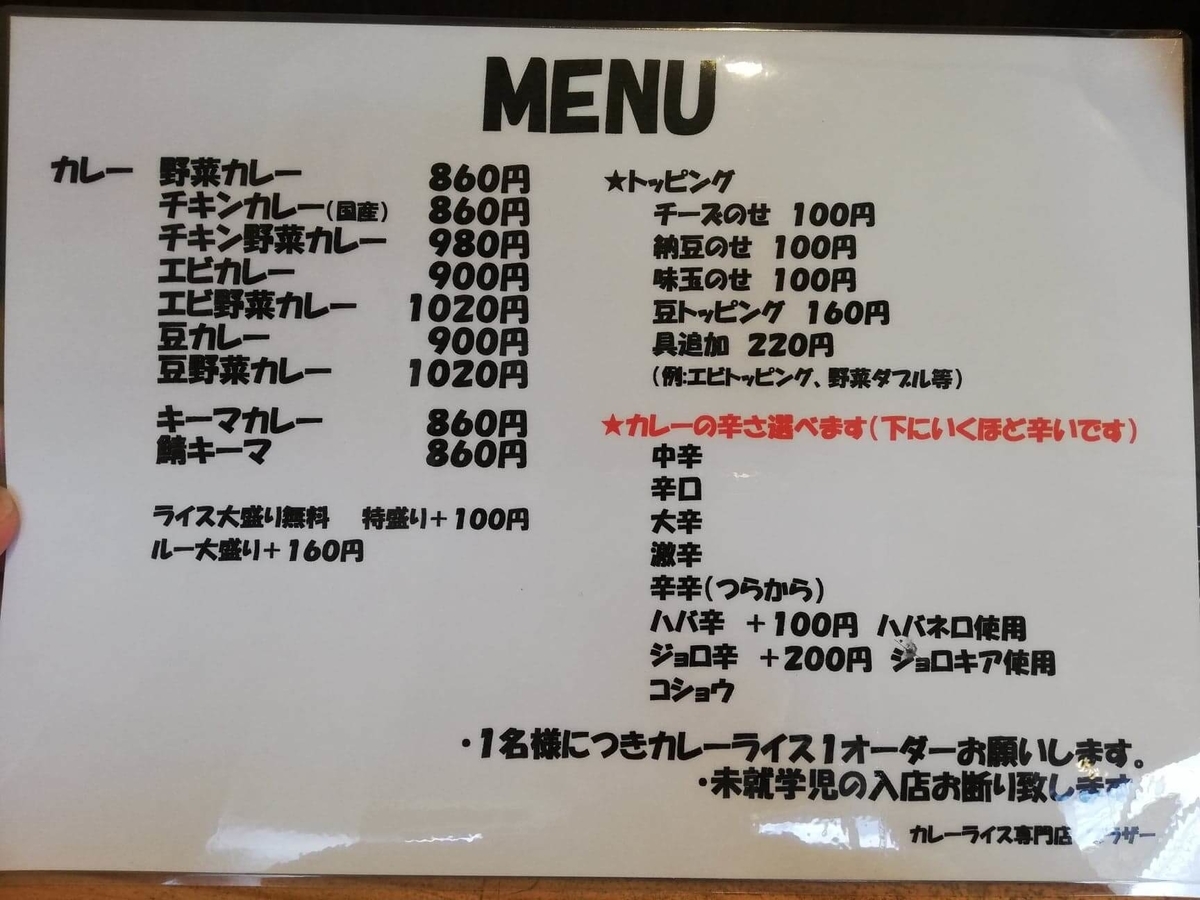 MENU
カレー 野菜カレー 860円
チキンカレー(国産) 860円
チキン野菜カレー 980円
エビカレー 900円
エビ野菜カレー 1020円
豆カレー 900円
豆野菜カレー 1020円
キーマカレー 860円
鯖キーマ 860円
ライス大盛り無料 特盛り+100円
ルー大盛り+160円
★トッピング
チーズのせ 100円
納豆のせ 100円
味玉のせ 100円
豆トッピング 160円
具追加 220円
(例:エビトッピング、野菜ダブル等)
★カレーの辛さ選べます(下にいくほど辛いです)
中辛
辛口
大辛
激辛
辛辛(つらから)
ハバ辛 +100円 ハバネロ使用
ジョロ辛 +200円 ジョロキア使用
コショウ
・1名様につきカレーライス1オーダーお願いします。
・未就学児の入店お断り致します
カレーライス専門店